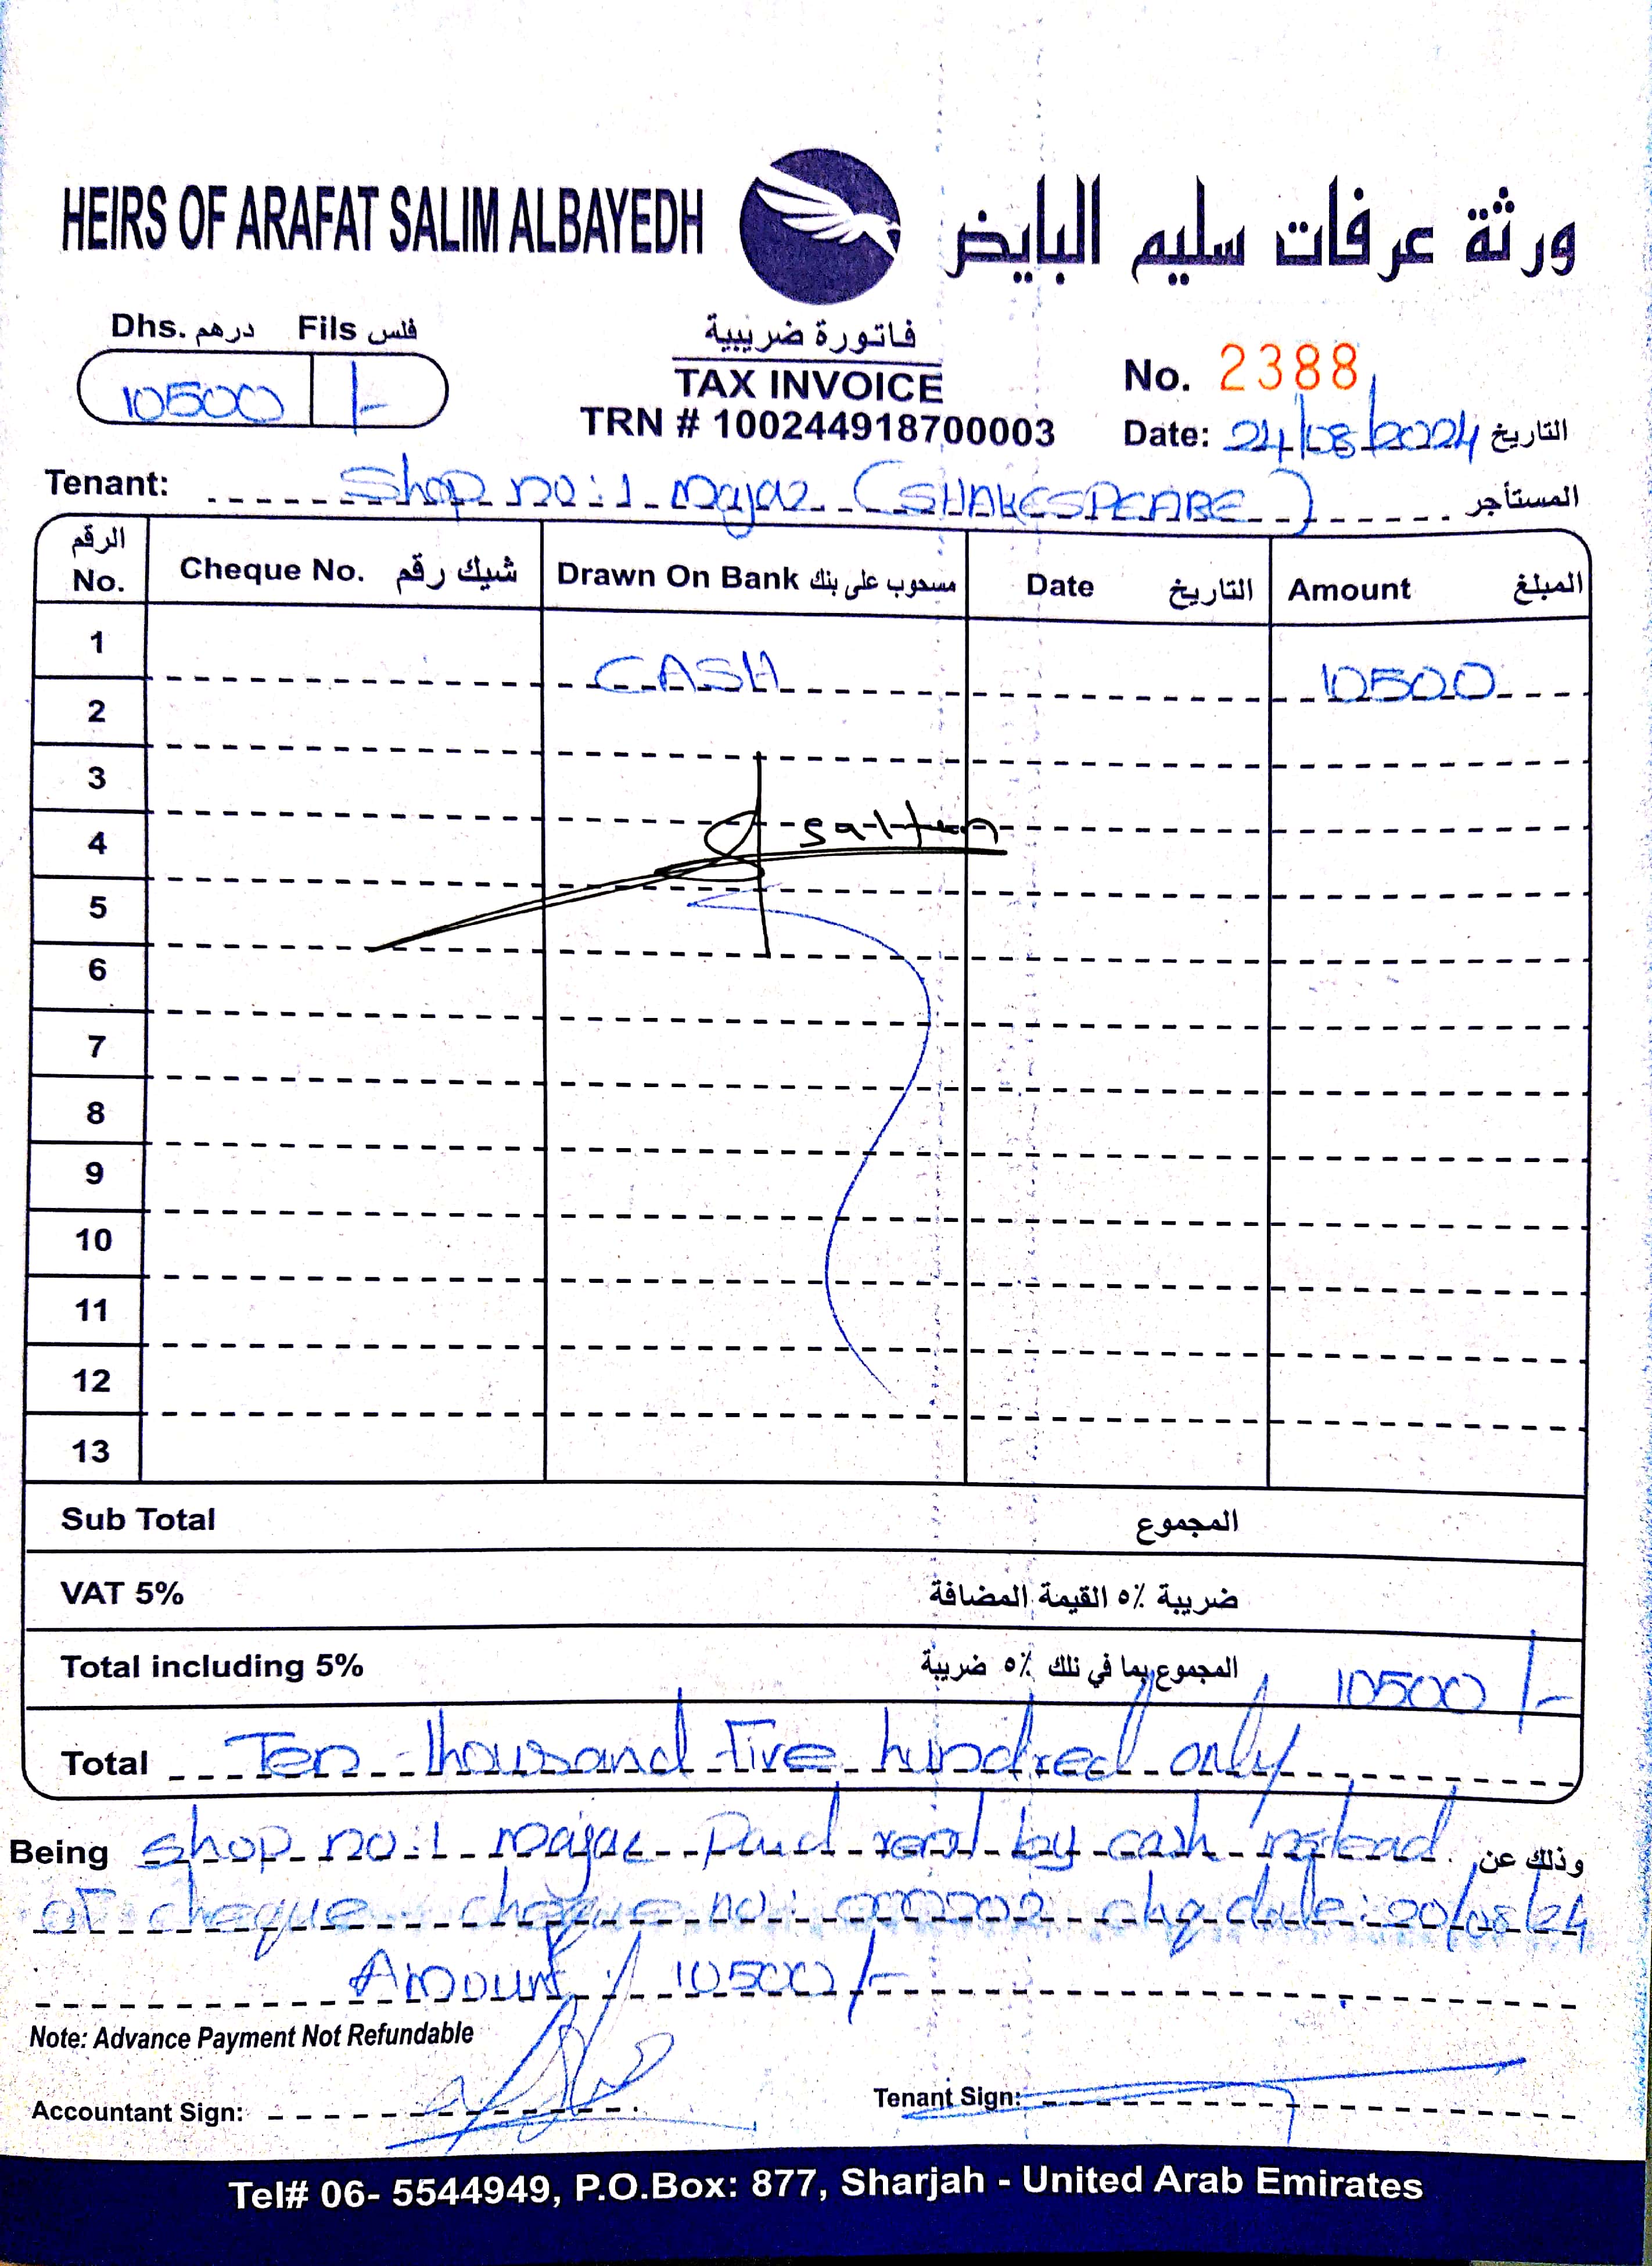 HEIRS OF ARAFAT SALIM ALBAYEDH ورثة عرفات سليم البايض
Dhs. درهم Fils فلس
10500 /-
فاتورة ضريبية
TAX INVOICE
TRN # 100244918700003
No. 2388
Date: 24/08/2024 التاريخ
Tenant: Shop no:1 Majaz (SHAKESPEARE) المستأجر
الرقم No. Cheque No. شيك رقم Drawn On Bank مسحوب على بنك Date التاريخ Amount المبلغ
1 CASH 10500
2
3
4 saltan
5
6
7
8
9
10
11
12
13
Sub Total المجموع
VAT 5% ضريبة ٥٪ القيمة المضافة
Total including 5% المجموع بما في ذلك ٥٪ ضريبة 10500 /-
Total Ten thousand five hundred only
Being shop no:1 majaz Paid rent by cash instead وذلك عن
of cheque cheque no: chq date: 20/08/24
Amount: 10500/-
Note: Advance Payment Not Refundable
Accountant Sign: Tenant Sign:
Tel# 06- 5544949, P.O.Box: 877, Sharjah - United Arab Emirates